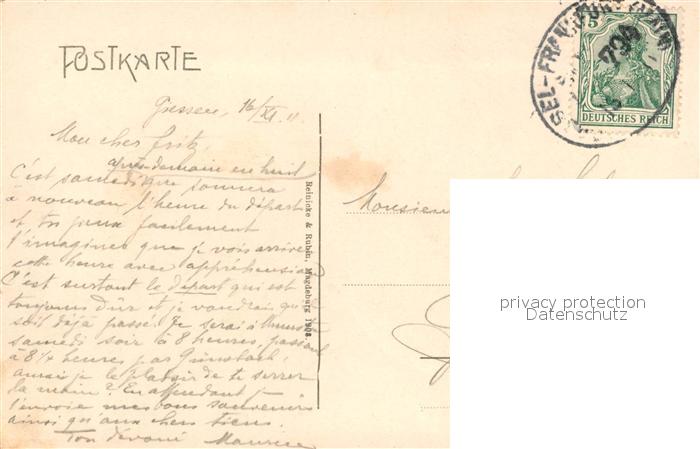 POSTKARTE
5
CASSEL-FRANKFURT (MAIN)
DEUTSCHES REICH
Giessen, 16/XI. 11
Mon cher Fritz,
après-demain en huit
C'est samedi que sonnera
à nouveau l'heure du départ
et tu peux facilement
t'imaginer que je vois arriver
cette heure avec appréhension
C'est surtout le départ qui est
toujours dûr et je voudrais qu'il
soit déjà passé. Je serai à
samedi soir à 8 heures, passant
à 8 1/4 heures par
aurai-je le plaisir de te serrer
la main? En attendant je
t'envoie mes bons souvenirs
ainsi qu'aux chers tiens.
Ton dévoué Maurice
Reinicke & Rubin, Magdeburg 1908.
Monsieur
privacy protection
Datenschutz